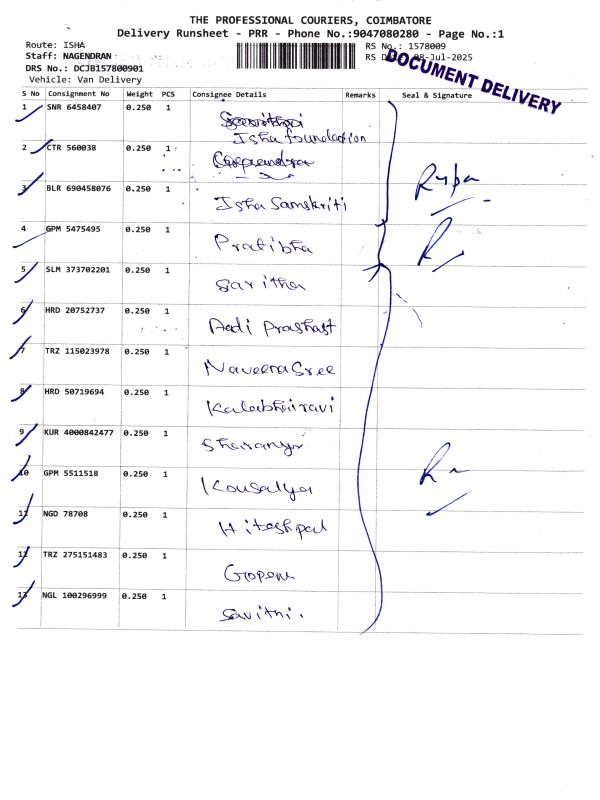 THE PROFESSIONAL COURIERS, COIMBATORE
Delivery Runsheet - PRR - Phone No.:9047080280 - Page No.:1
Route: ISHA
RS No.: 1578009
Staff: NAGENDRAN
RS 08-Jul-2025
DRS No.: DCJB157800901
DOCUMENT DELIVERY
Vehicle: Van Delivery
S No Consignment No Weight PCS Consignee Details Remarks Seal & Signature
1 SNR 6458407 0.250 1
Isha foundation
2 CTR 560038 0.250 1
3 BLR 690458076 0.250 1 Isha Samskriti
Rupa
4 GPM 5475495 0.250 1 Pratibha
5 SLM 373702201 0.250 1 Saritha
6 HRD 20752737 0.250 1 Aadi Prashast
7 TRZ 115023978 0.250 1 Naveena Sree
8 HRD 50719694 0.250 1 Kalabhairavi
9 KUR 4000842477 0.250 1 Sharanya
10 GPM 5511518 0.250 1 Kousalya
11 NGD 78708 0.250 1 Hiteshpal
12 TRZ 275151483 0.250 1
13 NGL 100296999 0.250 1 Savithi.